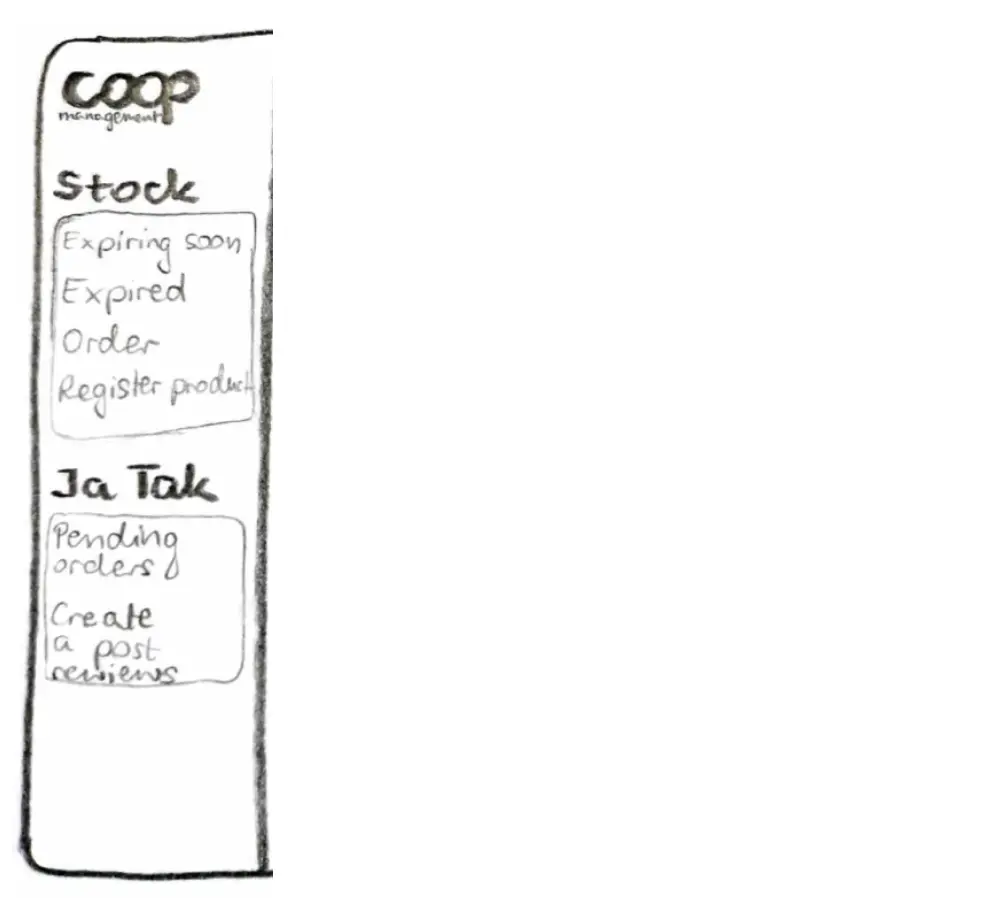 coop
management
Stock
Expiring soon
Expired
Order
Register product
Ja Tak
Pending
orders
Create
a post
reviews